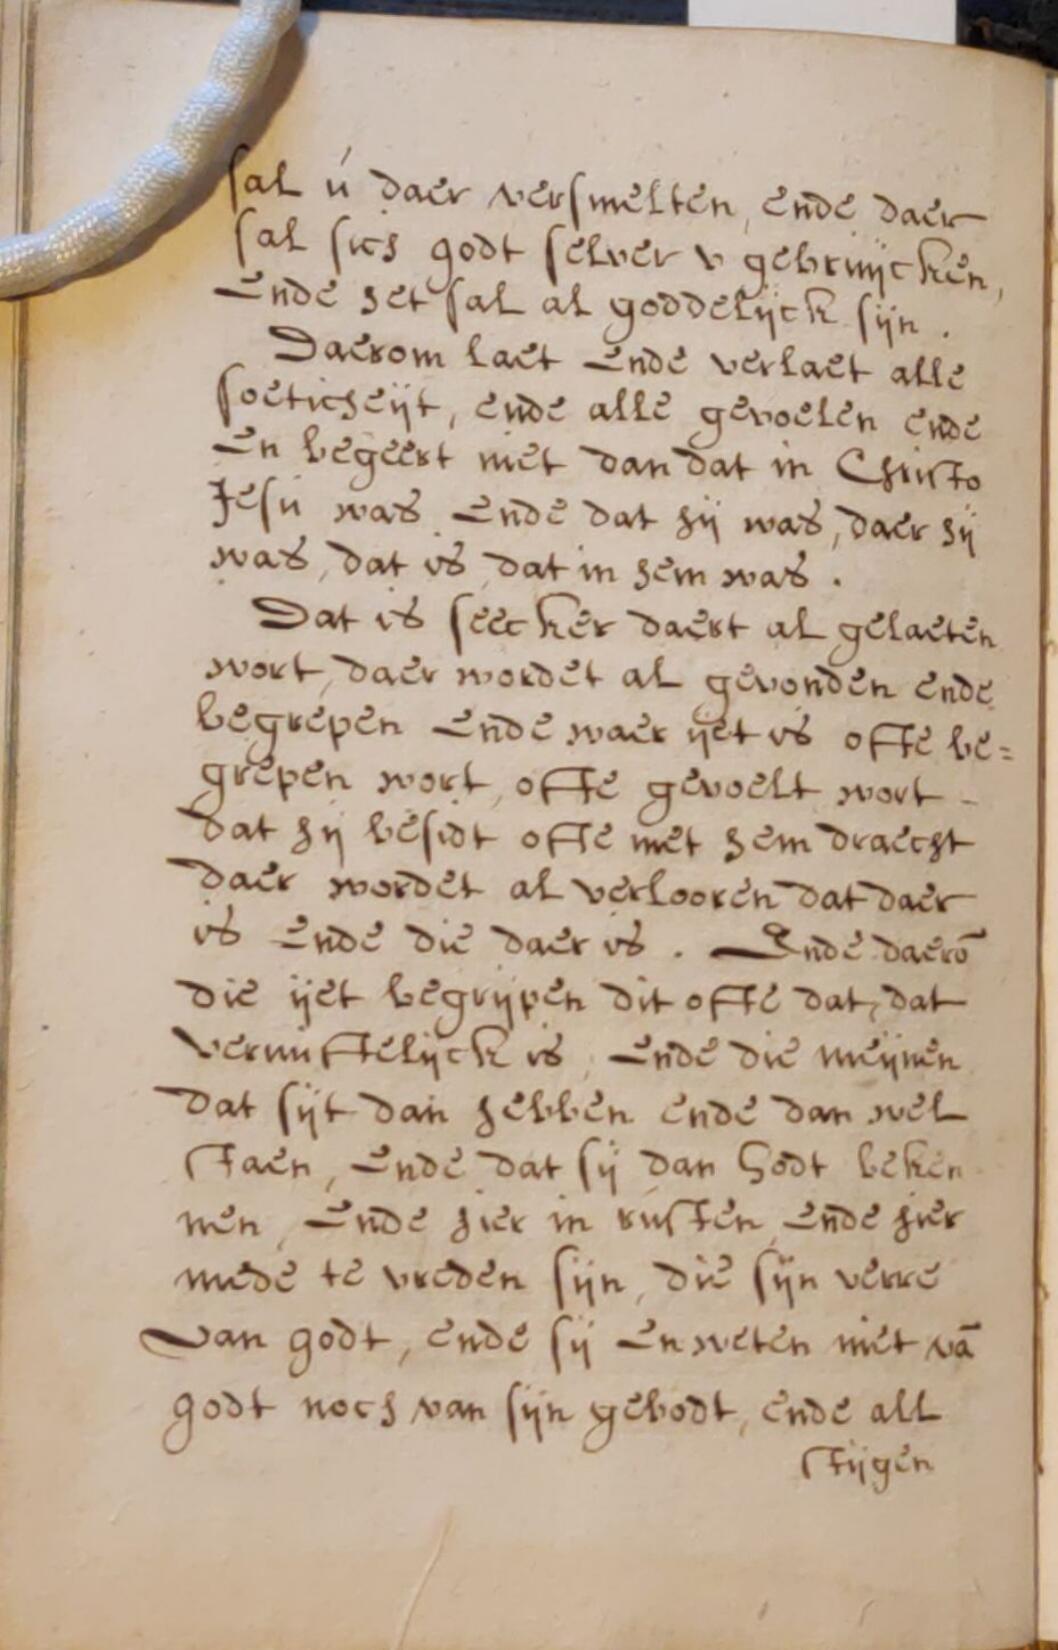 sal ú daer versmelten, ende daer
sal sich godt selver v gebruijcken,
Ende het sal al goddelijck sijn.
Daerom laet Ende verlaet alle
soeticheijt, ende alle gevoelen ende
En begeert niet dan dat in Christo
Jesu was Ende dat hij was, daer hij
was, dat is dat in hem was.
Dat is seecker daert al gelaeten
wort, daer wordet al gevonden ende
begrepen Ende waer ijet is ofte be=
grepen wort, ofte gevoelt wort
dat hij besidt ofte met hem draecht
daer wordet al verlooren dat daer
is Ende die daer is. Ende daerō
die ijet begrijpen dit ofte dat, dat
vernuftelijck is, Ende die meijnen
dat sijt dan hebben ende dan wel
staen, Ende dat sij dan Godt beken
nen, Ende hier in rusten Ende hier
mede te vreden sijn, die sijn verre
van godt, ende sij En weten niet vā
godt noch van sijn gebodt, ende all
stijgen